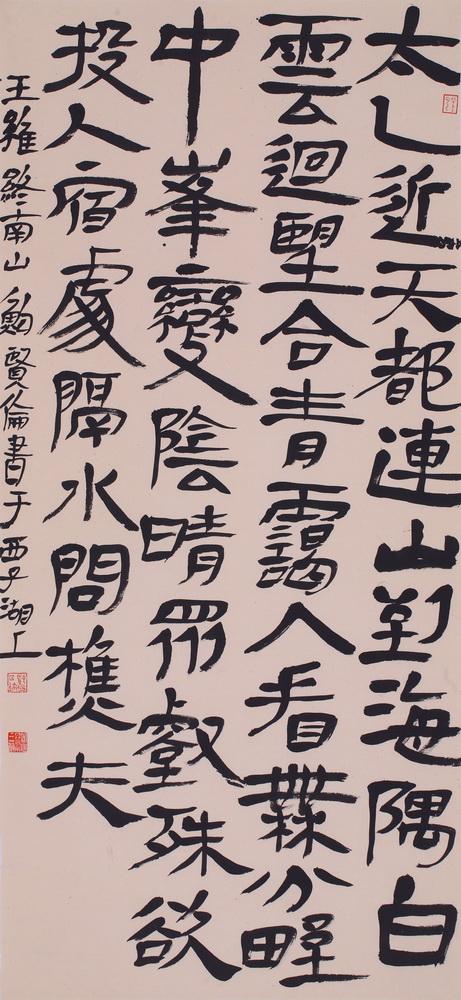 太乙近天都連山到海隅白
雲迴朢合青靄入看無分野
中峯變陰晴眾壑殊欲
投人宿處隔水問樵夫
王維終南山 鮑賢倫書于西子湖上